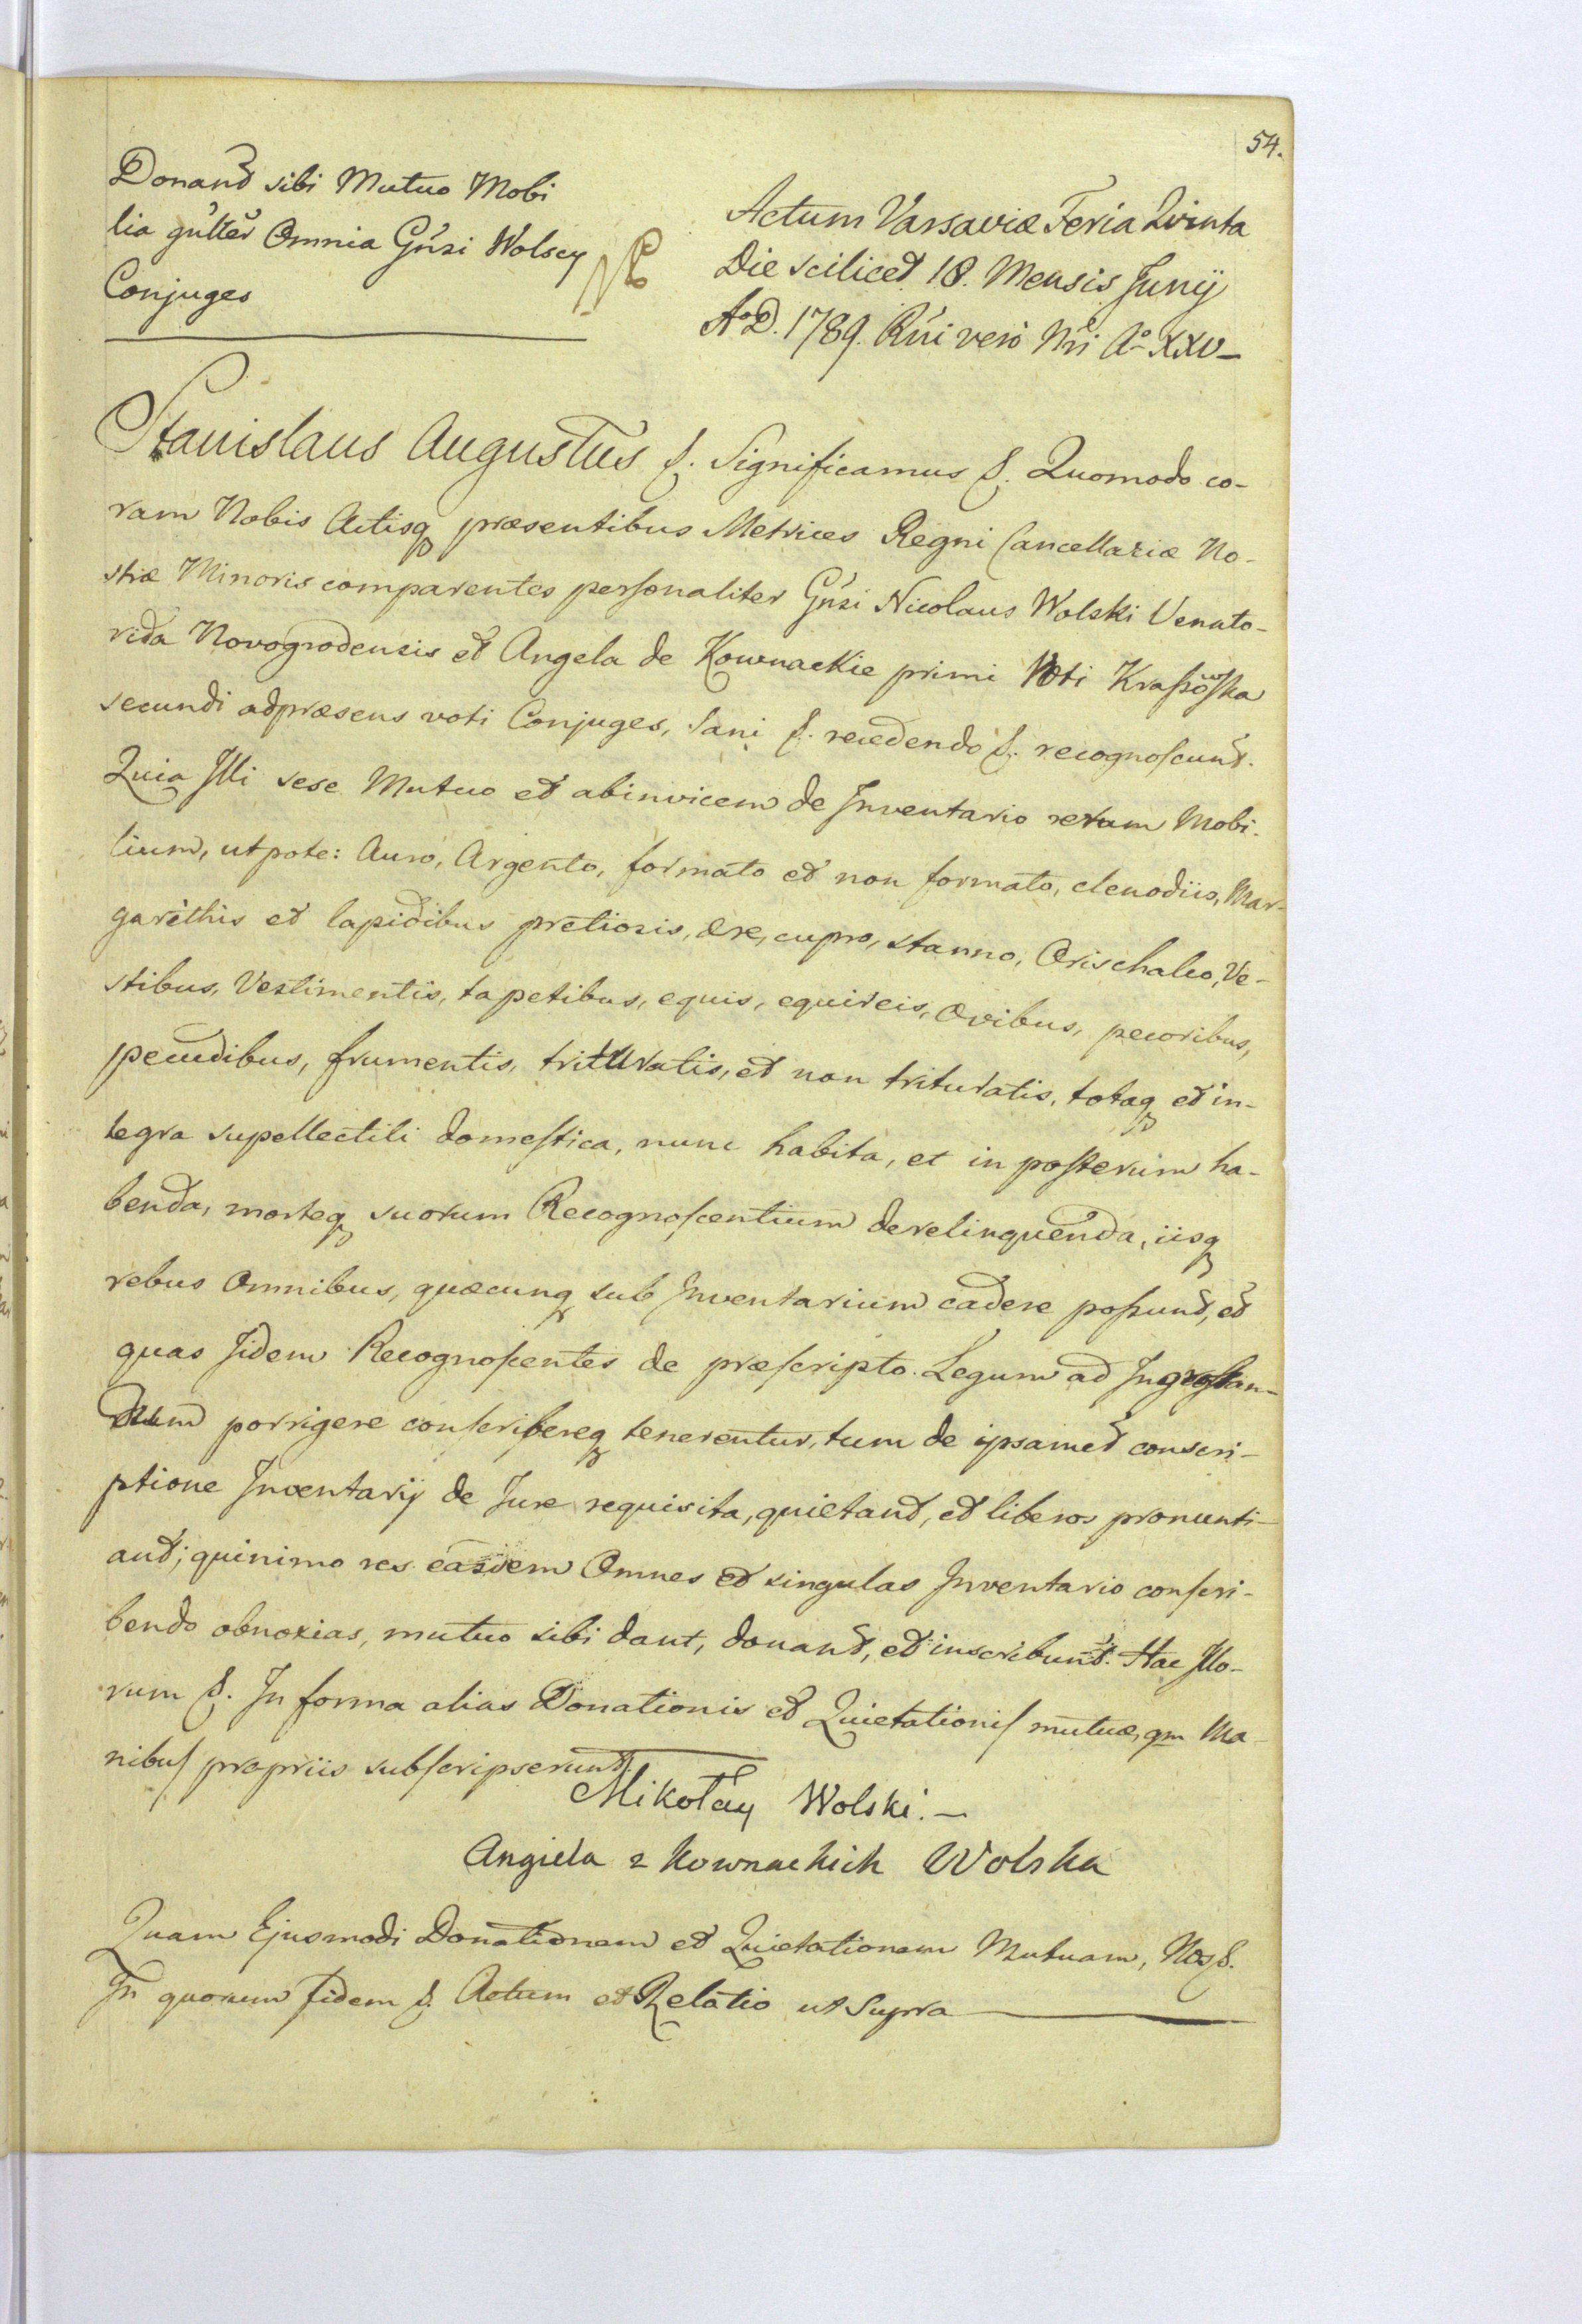 54.
Donand sibi Mutuo Mobi
lia gńtter Omnia Gńsi Wolscy
Conjuges
Actum Varsaviæ Feria Qvinta
Die scilicet 18. Mensis Junij
AoD. 1789. Rńi verò Nri Ao XXV_
Stanislaus Augustus &. Significamus &. Quomodo co-
ram Nobis Actisq præsentibus Metrices Regni Cancellariæ No-
stræ Minoris comparentes personaliter Gńsi Nicolaus Wolski Venato-
rida Novogrodensis et Angela de Kownackie primi Voti Kraszowska
secundi adpræsens voti Conjuges, Sani &. recedendo &. recognoscunt.
Quia Illi sese Mutuo et abinvicem de Inventario rerum Mobi-
lium, utpote: Auro, Argento, formato et non formato, clenodiis, Mar-
garithis et lapidibus pretiosis, ære, cupro, stanno, Orischalco, Ve-
stibus, Vestimentis, tapetibus, equis, equireis, Ovibus, pecoribus,
pecudibus, frumentis, trituratis, et non trituratis, totaq et in-
tegra supellectili domestica, nunc habita, et in posterum ha-
benda, morteq suorum Recognoscentium derelinquenda, iisq
rebus Omnibus, quæcunq sub Inventarium cadere possunt, et
quas Iidem Recognoscentes de præscripto Legum ad Ingrossan-
dum porrigere conscribereq tenerentur, tum de ipsamet conscri-
ptione Inventarij de Jure requisita, quietant, et liberos pronunti-
ant; quinimo res easdem Omnes et singulas Inventario conscri-
bendo obnoxias, mutuo sibi dant, donant, et inscribunt. Hac Illo-
rum &. In forma alias Donationis et Quietationis mutuæ, qm Ma-
nibus propriis subscripserunt.
Mikołay Wolski._
Angiela z Kownackich Wolska
Quam Ejusmodi Donationem et Quietationem Mutuam, Nos &.
In quorum fidem &. Actum et Relatio ut Supra